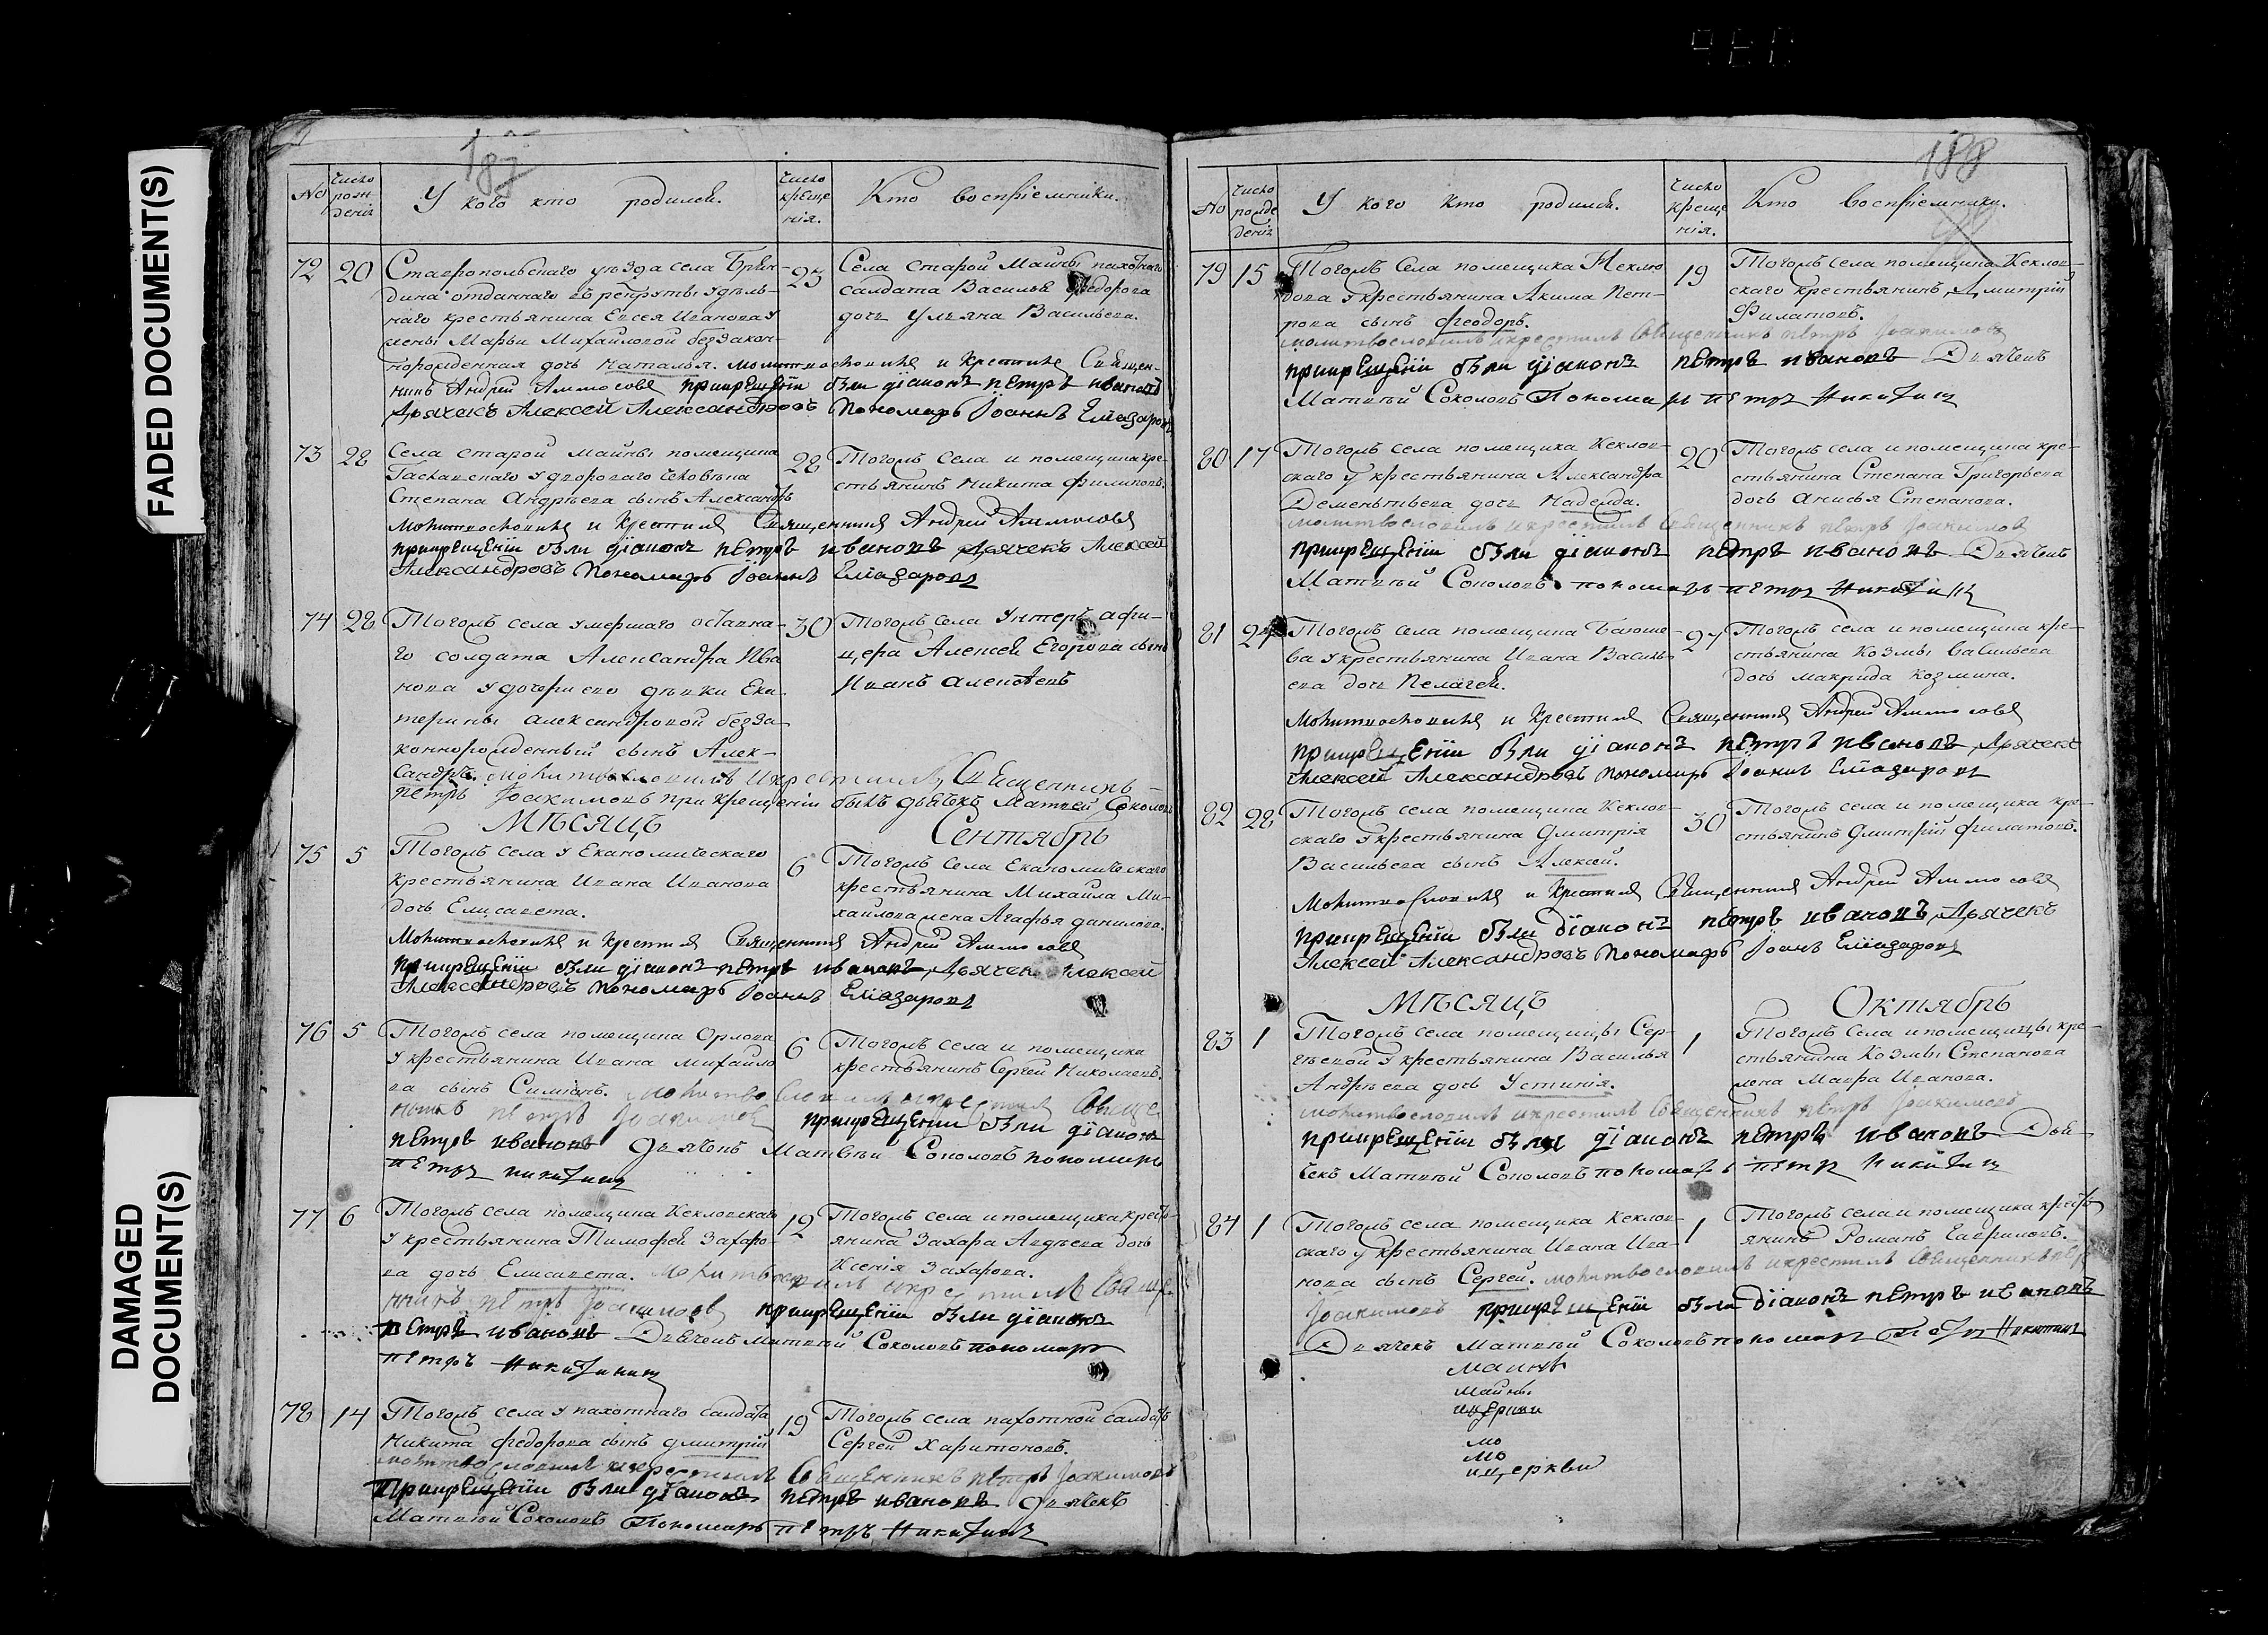 FADED DOCUMENT(S)
DAMAGED
DOCUMENT(S)
187
No
число рождения
У кого кто родился.
число крещения.
Кто воспріемники.
72 20 Ставропольскаго уѣзда села Брян-
дина отданнаго въ рекруты удѣль-
наго крестьянина Евсея Иванова у
жены Марьи Михайловой беззакон-
норожденная дочь Наталья. молитвословилъ и крестилъ Священ-
никъ Андрей Аммосовъ прикрещеніи были діаконъ петръ ивановъ
Дьячекъ Алексей Александровъ Пономарь Іоаннъ Елиазаровъ
23 Села старой Майны пахотнаго
салдата Василья Федорова
дочь Ульяна Васильева.
73 28 Села старой майны помещика
у двороваго человѣка
Степана Андрѣева сынъ Александръ
Молитвословилъ и Крестилъ Священникъ Андрей Аммосовъ
прикрещеніи были діаконъ петръ ивановъ Дьячекъ Алексей
Александровъ Пономарь Іоаннъ Елиазаровъ
28 Тогожъ села и помещика кре-
стьянинъ Никита Филиповъ.
74 28 Тогожъ села умершаго оставна-
го солдата Александра Ива
нова у дочери ево дѣвки Ека-
терины Александровой безза-
коннорожденный сынъ Алек-
сандръ. молитвословилъ и крестилъ Священникъ
петръ Іоакимовъ при крещеніи былъ дьячекъ Матвей Соколовъ
30 Тогожъ села Унтеръ афи-
цера Алексея Егорова сынъ
Иванъ Алексѣевъ
Мѣсяцъ Сентябрь
75 5 Тогожъ села у Екамическаго
крестьянина Ивана Иванова
дочь Елисавета.
Молитвословилъ и Крестилъ Священникъ Андрей Аммосовъ
прикрещеніи были діаконъ петръ ивановъ Дьячекъ Алексей
Александровъ Пономарь Іоаннъ Елиазаровъ
6 Тогожъ села Економическаго
крестьянина Михаила Ми-
хайлова жена Агафья данилова.
76 5 Тогожъ села помещика Орлова
у крестьянина Ивана михайло
ва сынъ Симіонъ. молитвословилъ и крестилъ Свяще
нникъ петръ Іоакимовъ прикрещеніи были діаконъ
петръ ивановъ Дьячекъ Матвѣй Соколовъ пономарь
петръ никитинъ
6 Тогожъ села и помещика
крестьянинъ Сергей Николаевъ.
77 6 Тогожъ села помещика Кекловскаго
у крестьянина Тимофея Захаро-
ва дочь Елисавета. Молитвословилъ и крестилъ Свяще
нникъ петръ Іоакимовъ прикрещеніи были діаконъ
петръ ивановъ Дьячекъ матвѣй Соколовъ пономарь
петръ Никитинъ
12 Тогожъ села и помещика кресть-
янина Захара Авдѣева дочь
Ксенія Захарова.
78 14 Тогожъ села у пахотнаго салдата
Никита федорова сынъ дмитрій
молитвословилъ и крестилъ Священникъ петръ Іоакимовъ
прикрещеніи были діаконъ петръ ивановъ Дьячекъ
Матвѣй Соколовъ Пономарь петръ Никитинъ
19 Тогожъ села пахотной салдатъ
Сергей Харитоновъ.
188
No
число рождения
У кого кто родился.
число крещения.
Кто воспріемники.
79 15 Тогожъ села помещика Неклю
дова у крестьянина Акима Пет-
рова сынъ Феодоръ.
молитвословилъ и крестилъ Священникъ петръ Іоакимовъ
прикрещеніи были діаконъ петръ ивановъ Дьячекъ
Матвѣй Соколовъ Пономарь петръ Никитинъ
19 Тогожъ села помещика Кеклов-
скаго крестьянинъ Дмитрій
Филатовъ.
80 17 Тогожъ села помещика Кеклов-
скаго у крестьянина Александра
Дементьева дочь Надежда.
молитвословилъ и крестилъ Священникъ петръ Іоакимовъ
прикрещеніи были діаконъ петръ ивановъ Дьячекъ
Матвѣй Соколовъ пономарь петръ Никитинъ
20 Тогожъ села и помещика кре-
стьянина Степана Григорьева
дочь анисья Степанова.
81 24 Тогожъ села помещика
у крестьянина Ивана Василь
ева дочь Пелагея.
Молитвословилъ и Крестилъ Священникъ Андрей Аммосовъ
прикрещеніи были діаконъ петръ ивановъ Дьячекъ
Алексей Александровъ Пономарь Іоаннъ Елиазаровъ
27 Тогожъ села и помещика кре-
стьянина Козмы васильева
дочь макрида козмина.
82 28 Тогожъ села помещика Кеклов-
скаго у крестьянина Дмитрія
Васильева сынъ Алексей.
Молитвословилъ и Крестилъ Священникъ Андрей Аммосовъ
прикрещеніи были діаконъ петръ ивановъ Дьячекъ
Алексей Александровъ Пономарь Іоанъ Елиазаровъ
30 Тогожъ села и помещика кре-
стьянинъ Дмитрій филатовъ.
Мѣсяцъ Октябрь
83 1 Тогожъ села помещицы Сер-
гѣевой у крестьянина Василья
Андрѣева дочь Устинія.
молитвословилъ и крестилъ Священникъ петръ Іоакимовъ
прикрещеніи были діаконъ петръ ивановъ Дья-
чекъ Матвѣй Соколовъ пономарь петръ Никитинъ
1 Тогожъ села и помещицы кре-
стьянина Козмы Степанова
жена Мавра Иванова.
84 1 Тогожъ села помещика Кеклов-
скаго у крестьянина Ивана Ива-
нова сынъ Сергей. молитвословилъ и крестилъ Священникъ петръ
Іоакимовъ прикрещеніи были діаконъ петръ ивановъ
Дьячекъ Матвѣй Соколовъ пономарь петръ Никитинъ
1 Тогожъ села и помещика кресть
янинъ Романъ Гавриловъ.
маинъ
майны
ицеркви
мо
мо
ицеркви